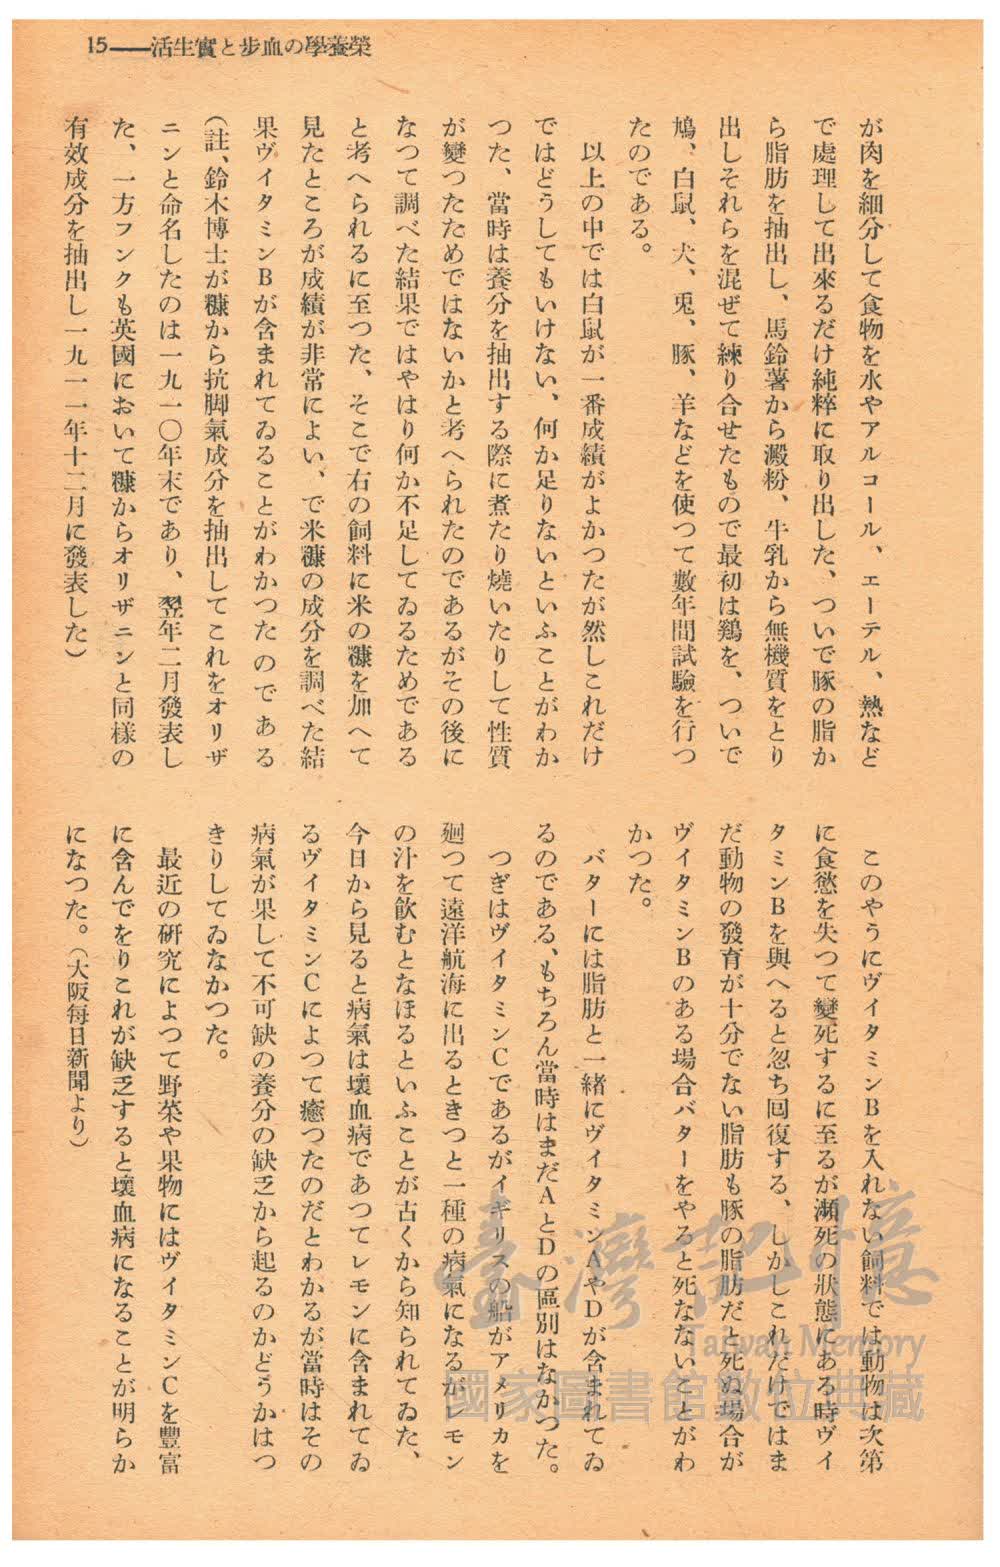 15——活生實と步血の學養榮
が肉を細分して食物を水やアルコール、エーテル、熱など
で處理して出來るだけ純粹に取り出した、ついで豚の脂か
ら脂肪を抽出し、馬鈴薯から澱粉、牛乳から無機質をとり
出しそれらを混ぜて練り合せたもので最初は鷄を、ついで
鳩、白鼠、犬、兎、豚、羊などを使つて數年間試驗を行つ
たのである。
以上の中では白鼠が一番成績がよかつたが然しこれだけ
ではどうしてもいけない、何か足りないといふことがわか
つた、當時は養分を抽出する際に煮たり燒いたりして性質
が變つたためではないかと考へられたのであるがその後に
なつて調べた結果ではやはり何か不足してゐるためである
と考へられるに至つた、そこで右の飼料に米の糠を加へて
見たところが成績が非常によい、で米糠の成分を調べた結
果ヴイタミンBが含まれてゐることがわかつたのである
(註、鈴木博士が糠から抗脚氣成分を抽出してこれをオリザ
ニンと命名したのは一九一〇年末であり、翌年二月發表し
た、一方フンクも英國において糠からオリザニンと同樣の
有效成分を抽出し一九一一年十二月に發表した)
このやうにヴイタミンBを入れない飼料では動物は次第
に食慾を失つて變死するに至るが瀕死の狀態にある時ヴイ
タミンBを與へると忽ち囘復する、しかしこれだけではま
だ動物の發育が十分でない脂肪も豚の脂肪だと死ぬ場合が
ヴイタミンBのある場合バターをやると死なないことがわ
かつた。
バターには脂肪と一緒にヴイタミンAやDが含まれてゐ
るのである、もちろん當時はまだAとDの區別はなかつた。
つぎはヴイタミンCであるがイギリスの船がアメリカを
廻つて遠洋航海に出るときつと一種の病氣になるがレモン
の汁を飮むとなほるといふことが古くから知られてゐた、
今日から見ると病氣は壞血病であつてレモンに含まれてゐ
るヴイタミンCによつて癒つたのだとわかるが當時はその
病氣が果して不可缺の養分の缺乏から起るのかどうかはつ
きりしてゐなかつた。
最近の研究によつて野菜や果物にはヴイタミンCを豐富
に含んでをりこれが缺乏すると壞血病になることが明らか
になつた。(大阪每日新聞より)
臺灣記憶
Taiwan Memory
國家圖書館數位典藏